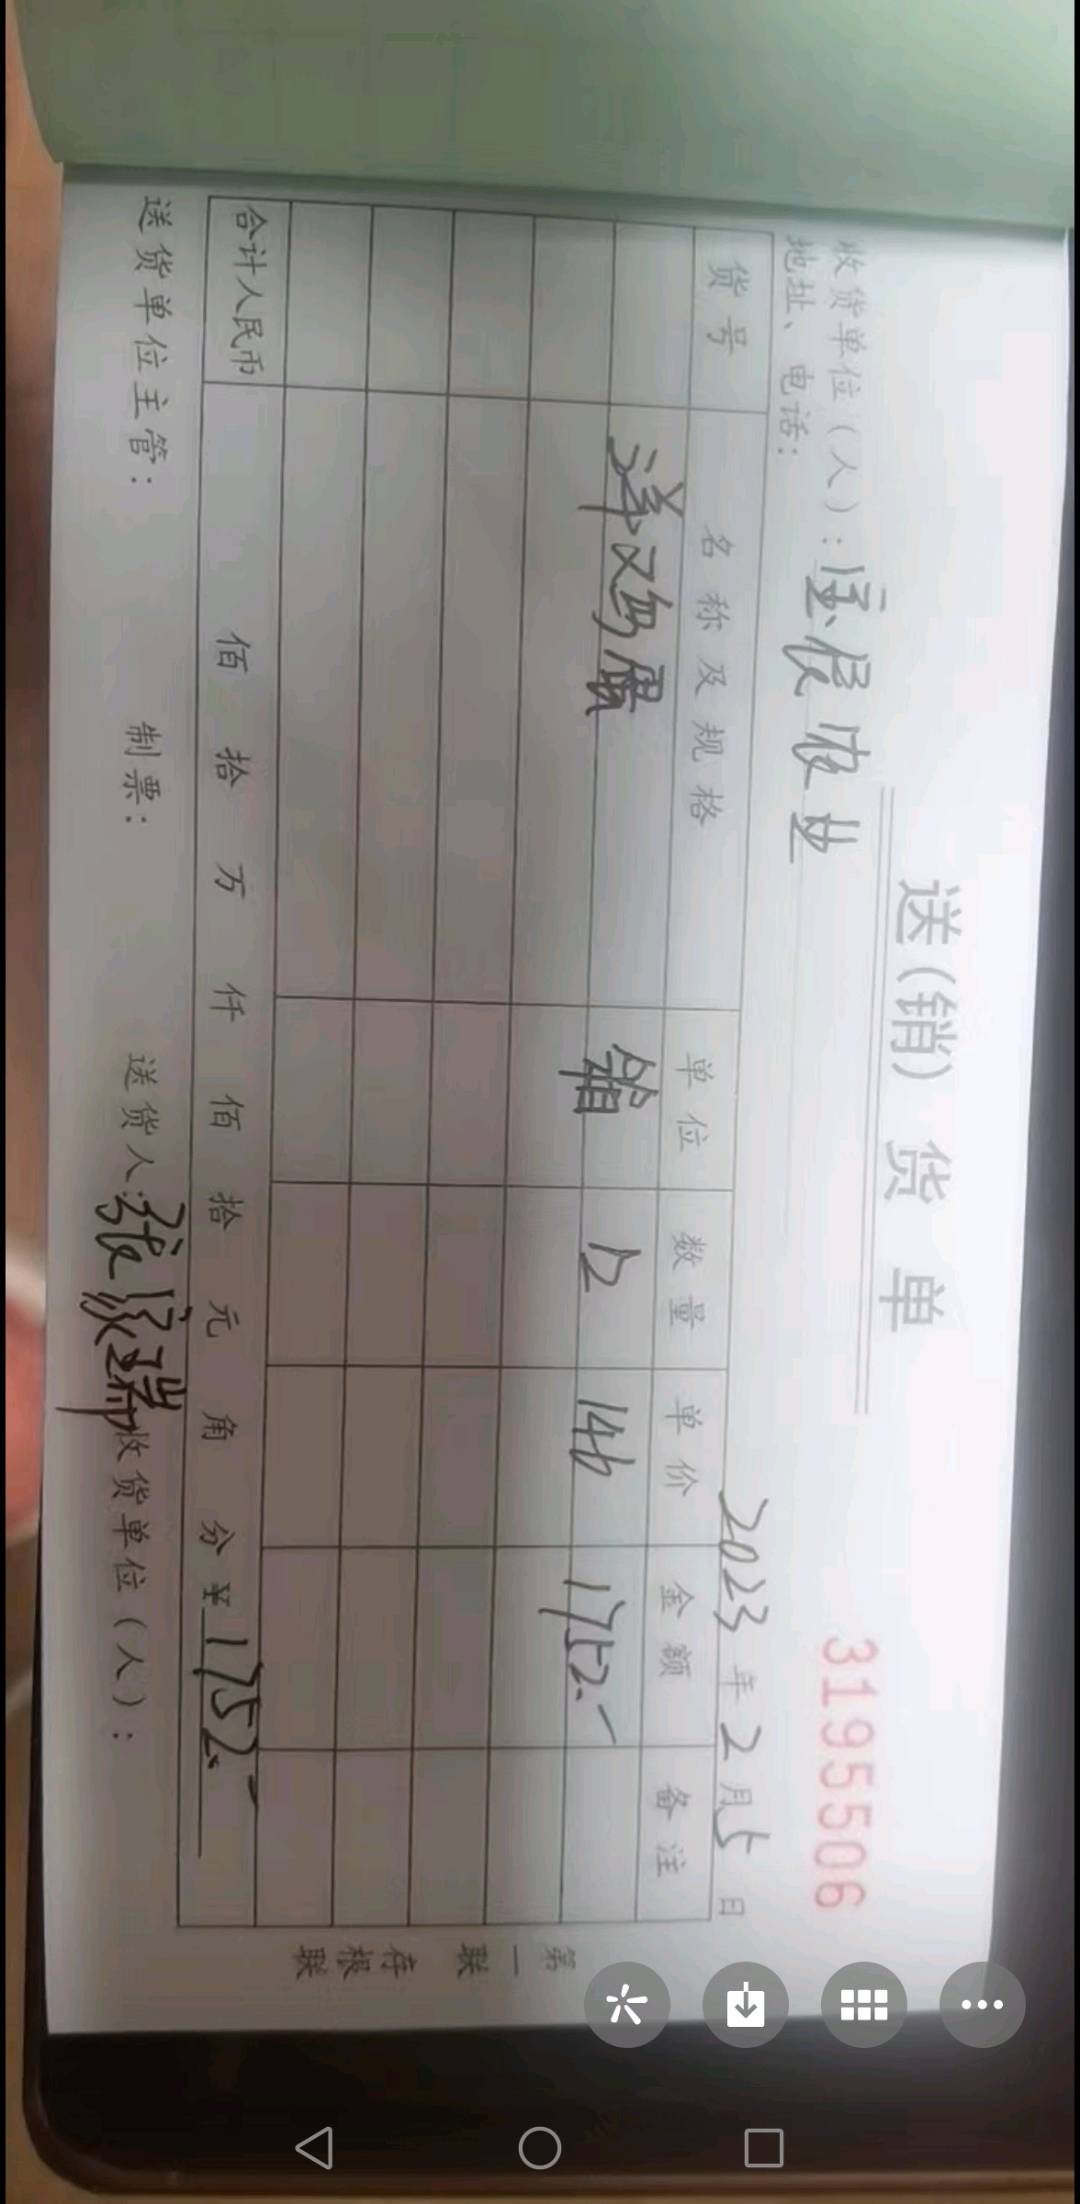 送(销)货单
3195506
收货单位(人):
农业
地址、电话:
2023年2月5日
货号 名称及规格 单位 数量 单价 金额 备注
洋鸡 箱 12 146 1752.-
合计人民币 佰 拾 万 仟 佰 拾 元 角 分 ¥1752.-
送货单位主管: 制票: 送货人:张瑞 收货单位(人):
第一联 存根联